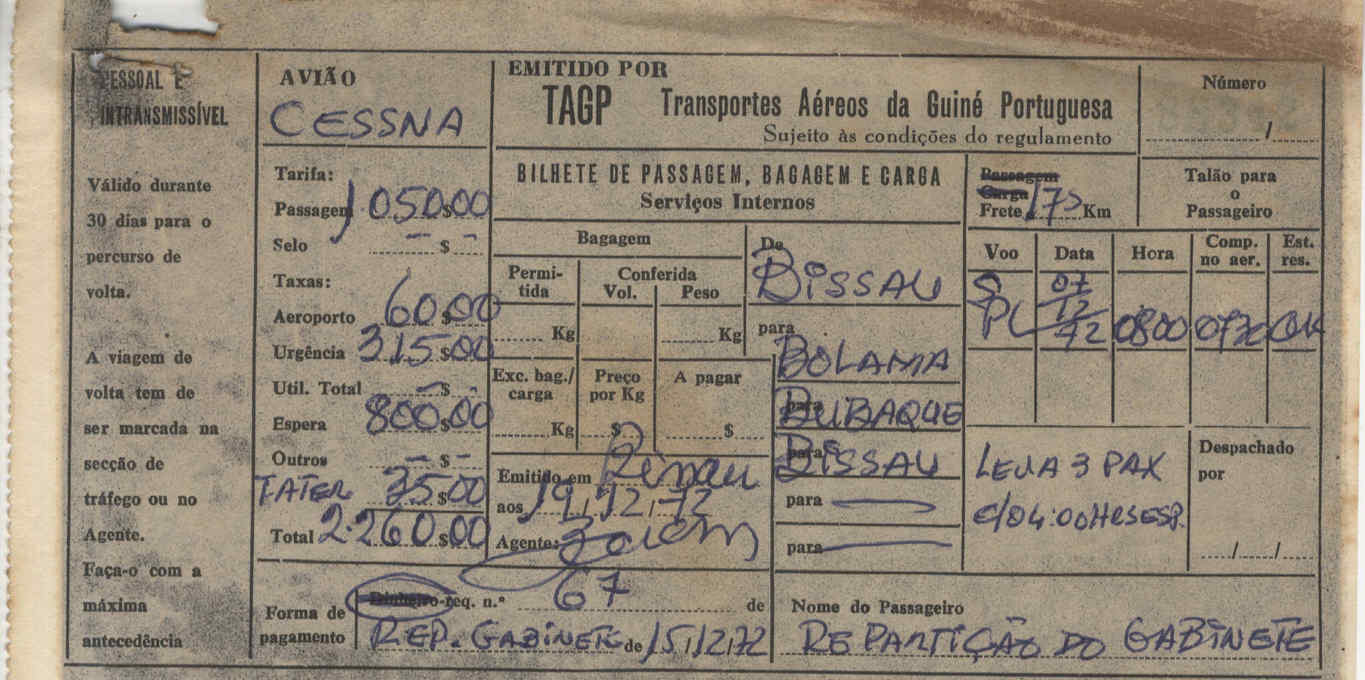 PESSOAL E
INTRANSMISSÍVEL
Válido durante
30 dias para o
percurso de
volta.
A viagem de
volta tem de
ser marcada na
secção de
tráfego ou no
Agente.
Faça-o com a
máxima
antecedência
AVIÃO
CESSNA
Tarifa:
Passagem 1 050$00
Selo - $ -
Taxas:
Aeroporto 60$00
Urgência 315$00
Util. Total - $ -
Espera 800$00
Outros - $ -
TATER 35$00
Total 2.260$00
EMITIDO POR
TAGP Transportes Aéreos da Guiné Portuguesa
Sujeito às condições do regulamento
BILHETE DE PASSAGEM, BAGAGEM E CARGA
Serviços Internos
Bagagem
Permi-
tida
Conferida
Vol. Peso
Kg Kg
Exc. bag./
carga
Preço
por Kg
A pagar
Kg $ $
Emitido em Bissau
aos 19,12,72
Agente:
De
BISSAU
para
BOLAMA
para
BUBAQUE
para
BISSAU
para
para
Número
/
Passagem
Carga
Frete 175 Km
Talão para
o
Passageiro
Voo Data Hora Comp. no aer. Est. res.
07
12
72 0800 0730 OK
LEVA 3 PAX
c/04:00HRS ESP.
Despachado
por
/ /
Forma de
pagamento
Dinheiro-req. n.º 67 de
REP. GABINETE de 15/12/72
Nome do Passageiro
REPARTIÇÃO DO GABINETE